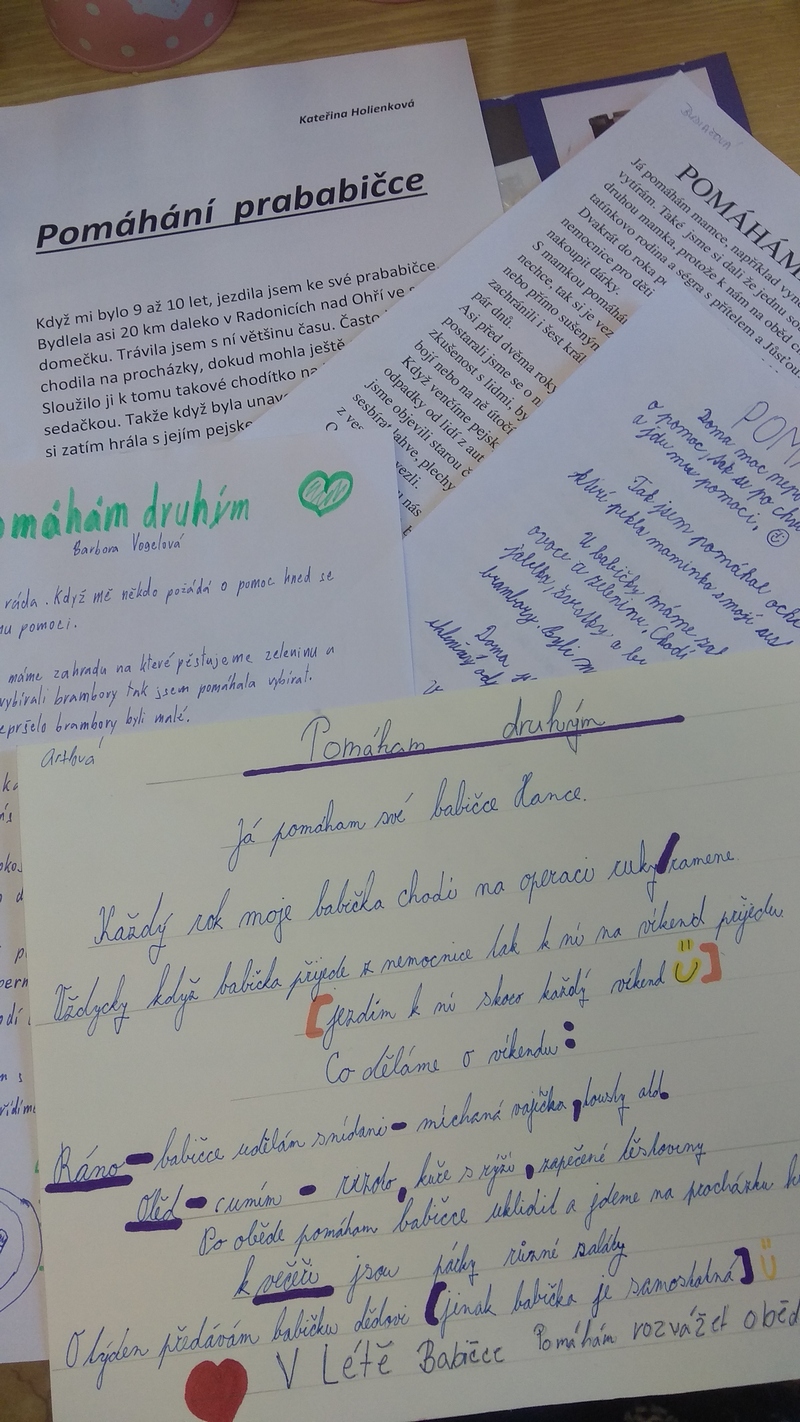 Kateřina Holienková
Pomáhání prababičce
Když mi bylo 9 až 10 let, jezdila jsem ke své prababičce.
Bydlela asi 20 km daleko v Radonicích nad Ohří ve
domečku. Trávila jsem s ní většinu času. Často
chodila na procházky, dokud mohla ještě
Sloužilo ji k tomu takové chodítko na
sedačkou. Takže když byla unav
si zatím hrála s jejím pejske
POMÁHÁM
Já pomáhám mamce, například vyn
vytírám. Také jsme si dali že jednu so
druhou mamka, protože k nám na oběd c
tatínkovo rodina a ségra s přítelem a Jůsťou.
Dvakrát do roka p
nemocnice pro děti
nakoupit dárky.
S mamkou pomáhá
nechce, tak si je vez
nebo přímo sušeným
zachránili i šest král
pár dnů.
Asi před dvěma roky
postarali jsme se o n
zkušenost s lidmi, by
bojí nebo na ně útočí
Když venčíme pejsk
odpadky od lidí z aut
jsme objevili starou č
sesbírat lahve, plechy
vezli.
u nás
z ve
POM
Doma moc nepo
o pomoc, tak se po chv
a jdu mu pomoci.
Tak jsem pomáhal
která pekla maminka smojí
U babičky máme
ovoce a zeleninu. Chodí
jablka, švestky. a
brambory. Byli m
Doma
omáhám druhým
Barbora Vogelová
ráda. Když mě někdo požádá o pomoc hned se
mu pomoci.
máme zahradu na které pěstujeme zeleninu a
vybírali brambory tak jsem pomáhala vybírat.
epršelo brambory byli malé.
Artlová
Pomáham druhým
Já pomáham své babičce Hance.
Každý rok moje babička chodí na operaci ruky/ramene.
Vždycky když babička přijede z nemocnice tak k ní na víkend přijedu
[jezdím k ní skoro každý víkend]
Co děláme o víkendu:
Ráno - babičce udělám snídani - míchaná vajíčka, tousty atd.
Oběd - cumím - rizoto, kuře s rýží, zapečené těstoviny
Po obědě pomáham babičce uklidit a jdeme na procházku
k večeři jsou párky různé saláty
O týden předávám babičku dědovi (jinak babička je samostatná]
V Létě Babičce Pomáhám rozvážet oběd